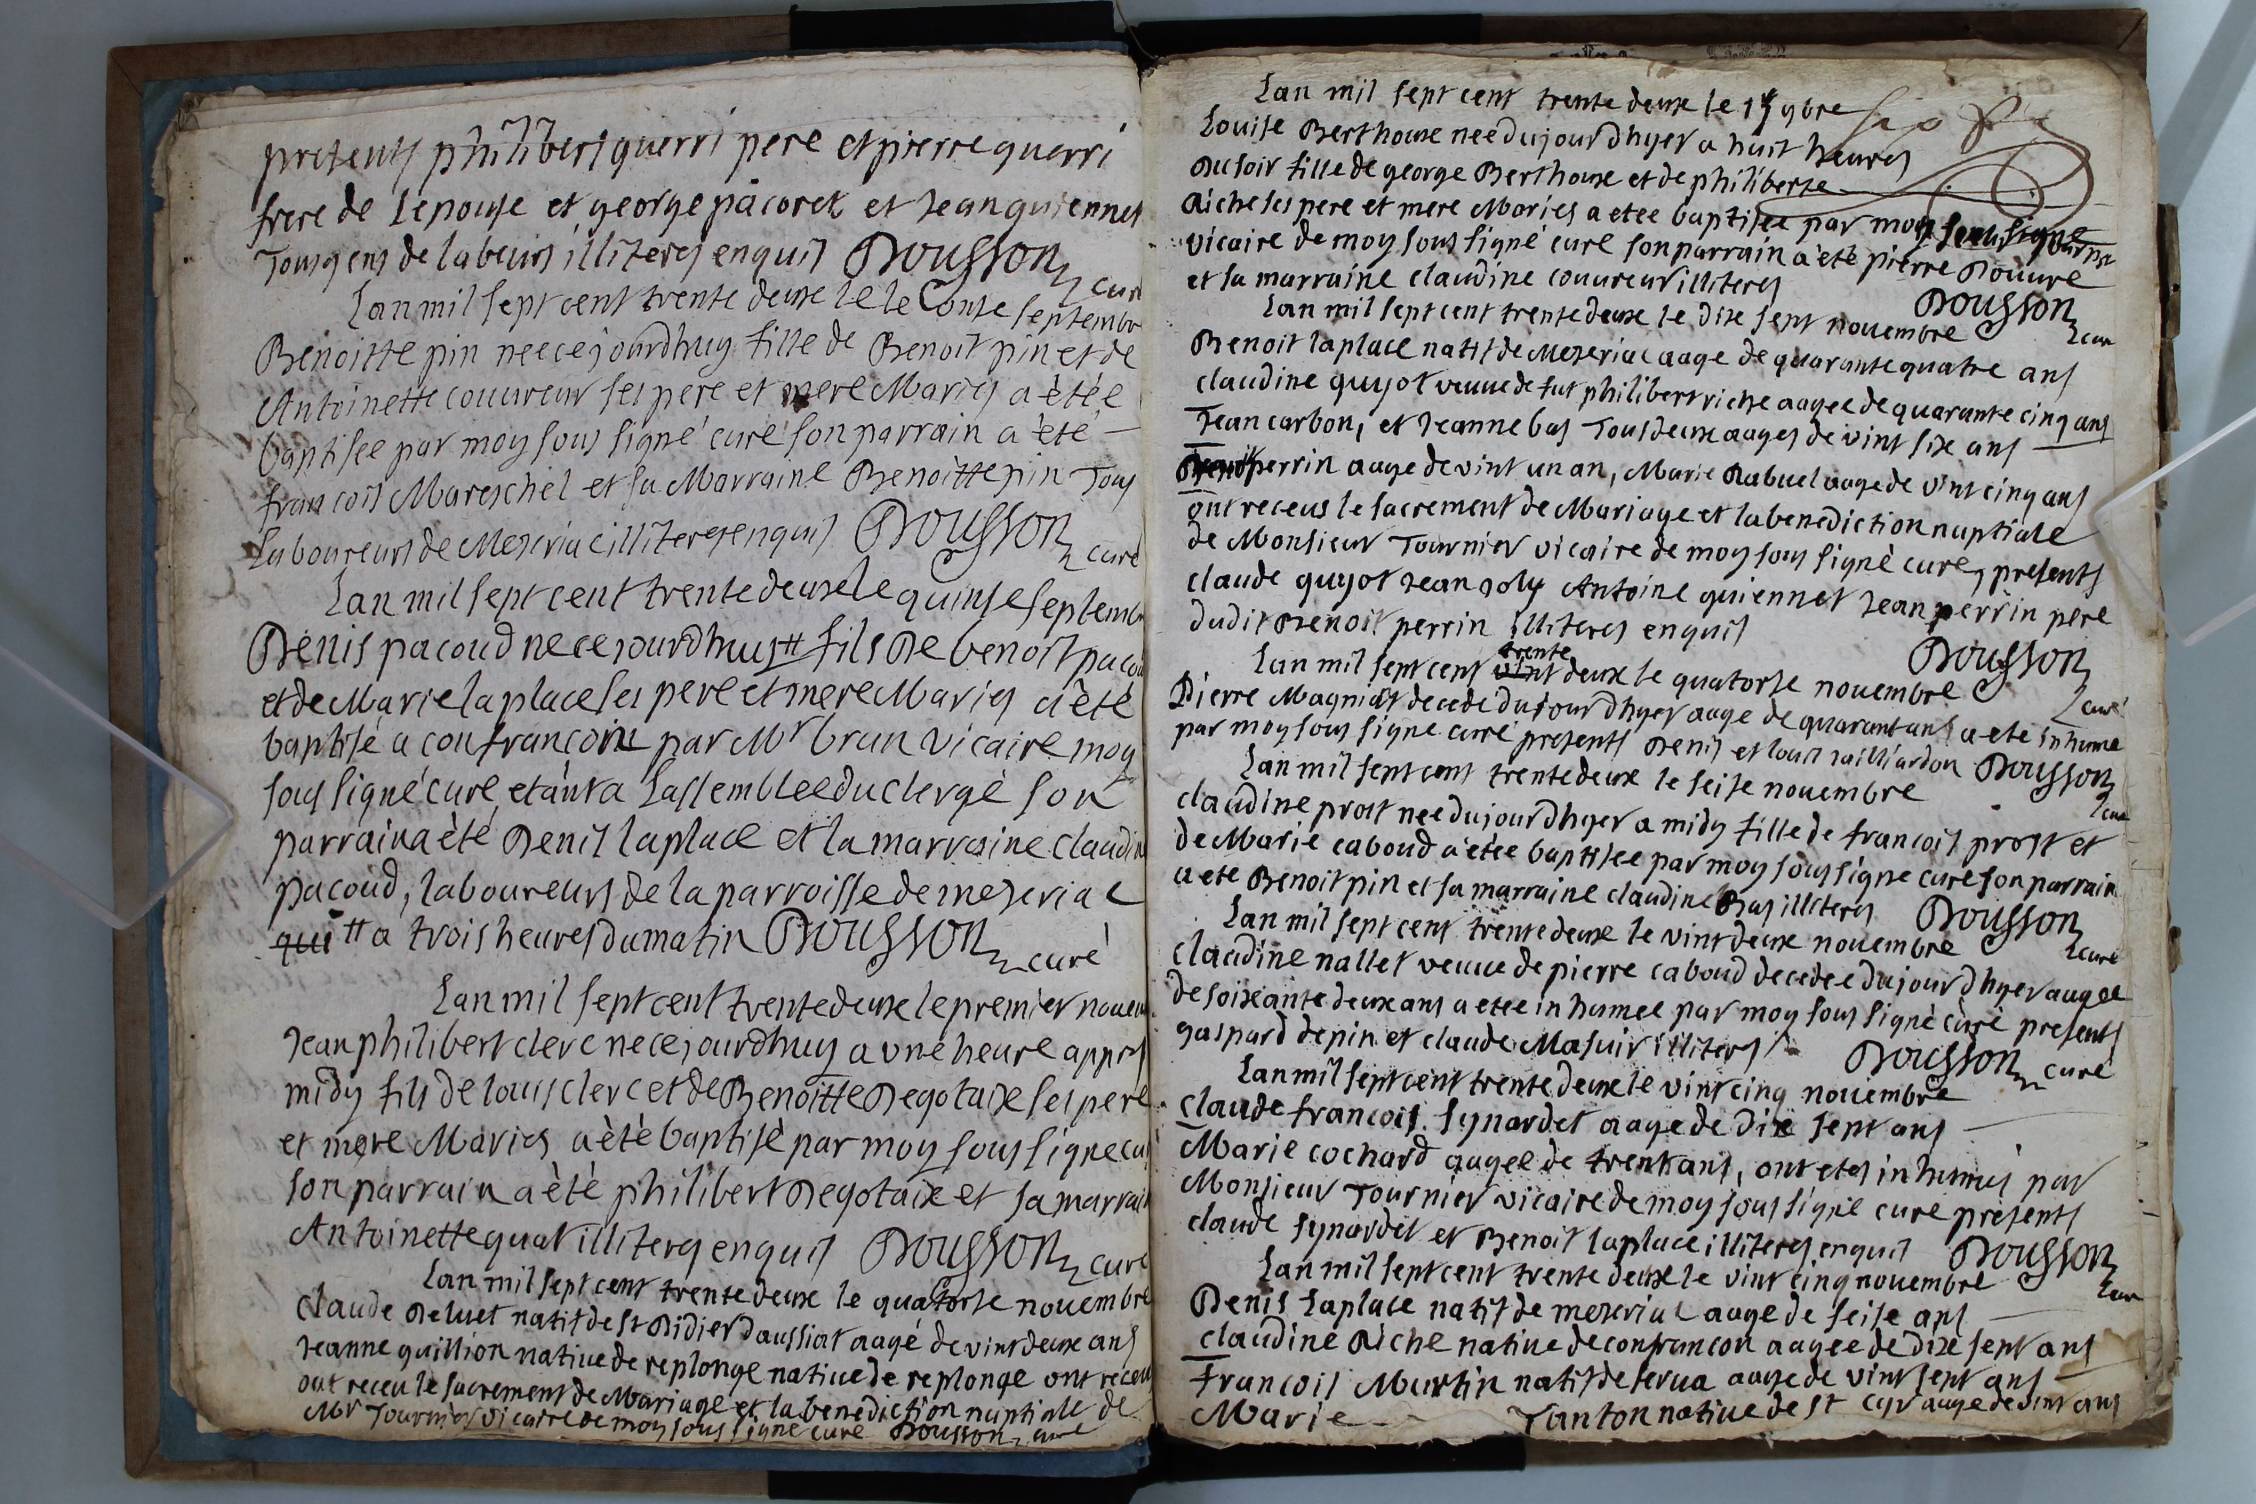 presents philibert querri pere et pierre querri
frere de lepouse et george pacoret et Jean guiennet
Tous gens de labeurs illiteres enquis Dousson curé
Lan mil sept cent trente deux le le onse septembr
Benoitte pin nee cejourdhuy fille de Benoit pin et de
Antoinette couureur ses pere et mere Mariés a étée
baptisee par moy sous signé curé son parrain a été
francois Mareschel et sa Marraine Benoitte pin Tous
laboureurs de Mezeriac illiteres enquis Dousson curé
Lan mil sept cent trente deux le quinse septemb
Denis pacoud ne cejourdhuy # fils De benoit pacou
et de Marie laplace ses pere et mere Mariés a été
baptisé a confrancon par Mr brun vicaire moy
sous signé curé etant a Lassemblee du clergé son
parrain a été Denis laplace et la marraine claudin
pacoud, laboureurs de la parroisse de mezeriac
qui # a trois heures du matin Dousson curé
Lan mil sept cent trente deux le premier nouem
Jean philibert clerc ne cejourdhuy a une heure appres
midy fils de louis clerc et de Benoitte Degotaix ses pere
et mere Mariés a été baptisé par moy sous signe cu
son parrain a été philibert Degotaix et sa marrain
Antoinette quat illiteres enquis Dousson curé
Lan mil sept cent trente deux le quatorse nouembre
claude Deluet natif de st Didier daussiat aagé de vint deux ans
Jeanne guillion natiue de replonge natiue de replonge ont receu
ont receu le sacrement de Mariage et la benediction nuptiale de
Mr Tournier vicaire de moy sous signe curé Dousson curé
Lan mil sept cent trente deux le 15 9bre
Louise Berthoux nee du jour dhyer a huit heures
du soir fille de george Berthoux et de philiberte
Riche ses pere et mere Mariés a etée baptisee par moy sous signe
vicaire de moy sous signé curé son parrain a été pierre Douure
et sa marraine claudine couureur illiteres
Dousson curé
Lan mil sept cent trente deux le dix sept nouembre
Benoit laplace natif de Mezeriac aage de quarante quatre ans
claudine guyot veuue de fut philibert riche aagee de quarante cinq ans
Jean carbon, et Jeanne bas Tous deux aages de vint six ans
perrin aage de vint un an, Marie Rabuel aage de vint cinq ans
ont receus le sacrement de Mariage et la benediction nuptiale
de Monsieur Tournier vicaire de moy sous signé curé, presents
claude guyot Jean Joly Antoine guiennet Jean perrin pere
dudit Benoit perrin illiteres enquis
Dousson curé
Lan mil sept cent vint trente deux le quatorse nouembre
Pierre Magniat decedé du jour dhyer aage de quarant ans a ete inhume
par moy sous signe curé presents Denis et louis railliardon Dousson cure
Lan mil sept cent trente deux le seise nouembre
claudine prost nee du jour dhyer a midy fille de francois prost et
de Marie caboud a étée baptisee par moy sous signe curé son parrain
a ete Benoit pin et sa marraine claudine Bas illiteres Dousson curé
Lan mil sept cent trente deux le vint deux nouembre
claudine nallet veuue de pierre caboud decedee du jour dhyer augee
de soixante deux ans a etee inhumee par moy sous signé curé presents
gaspard depin et claude Masuir illiters Dousson curé
Lan mil sept cent trente deux le vint cinq nouiembre
claude francois synardet aage de dix sept ans
Marie cochard augee de trent ans, ont etes inhumés par
Monsieur Tournier vicaire de moy sous signé curé presents
claude synardet et Benoit laplace illiteres enquis Dousson cur
Lan mil sept cent trente deux le vint cinq nouembre
Denis Laplace natif de mezeriac aage de seise ans
claudine Riche natiue de confrancon aagee de dix sept ans
francois Martin natif de serua aage de vint sept ans
Marie Tanton natiue de st cyr aage de vint ans